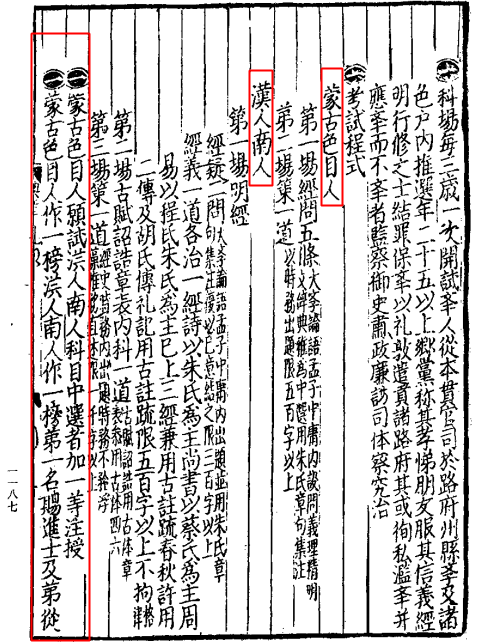 一科場每三歲一次開試举人從本貫官司於路府州縣孝及諸
色戶內推選年二十五以上鄉黨称其孝悌朋友服其信義經
明行修之士結罪保举以礼敦遣貢諸路府其或徇私濫举并
應举而不举者監察御史肅政廉訪司体察究治
一考試程式
蒙古色目人
第一場經問五條大孝論語孟子中庸內設問義理精明文辞典雅為中選用朱氏章句集註
第二場策一道以時務出題限五百字以上
漢人南人
第一場明經
經疑二問大孝論語孟子中庸內出題並用朱氏章句集註復以己意結之限三百字以上
經義一道各治一經詩以朱氏為主尚書以蔡氏為主周
易以程氏朱氏為主已上三經兼用古註疏春秋許用
三傳及胡氏傳礼記用古註疏限五百字以上不拘格律
第二場古賦詔誥章表內科一道古賦詔誥用古体章表参用古体四六
第三場策一道經史時務內出題不矜浮藻惟務直述限一千字以上
一蒙古色目人願試漢人南人科目中選者加一等注授
一蒙古色目人作一榜漢人南人作一榜第一名賜進士及第從
一一八七